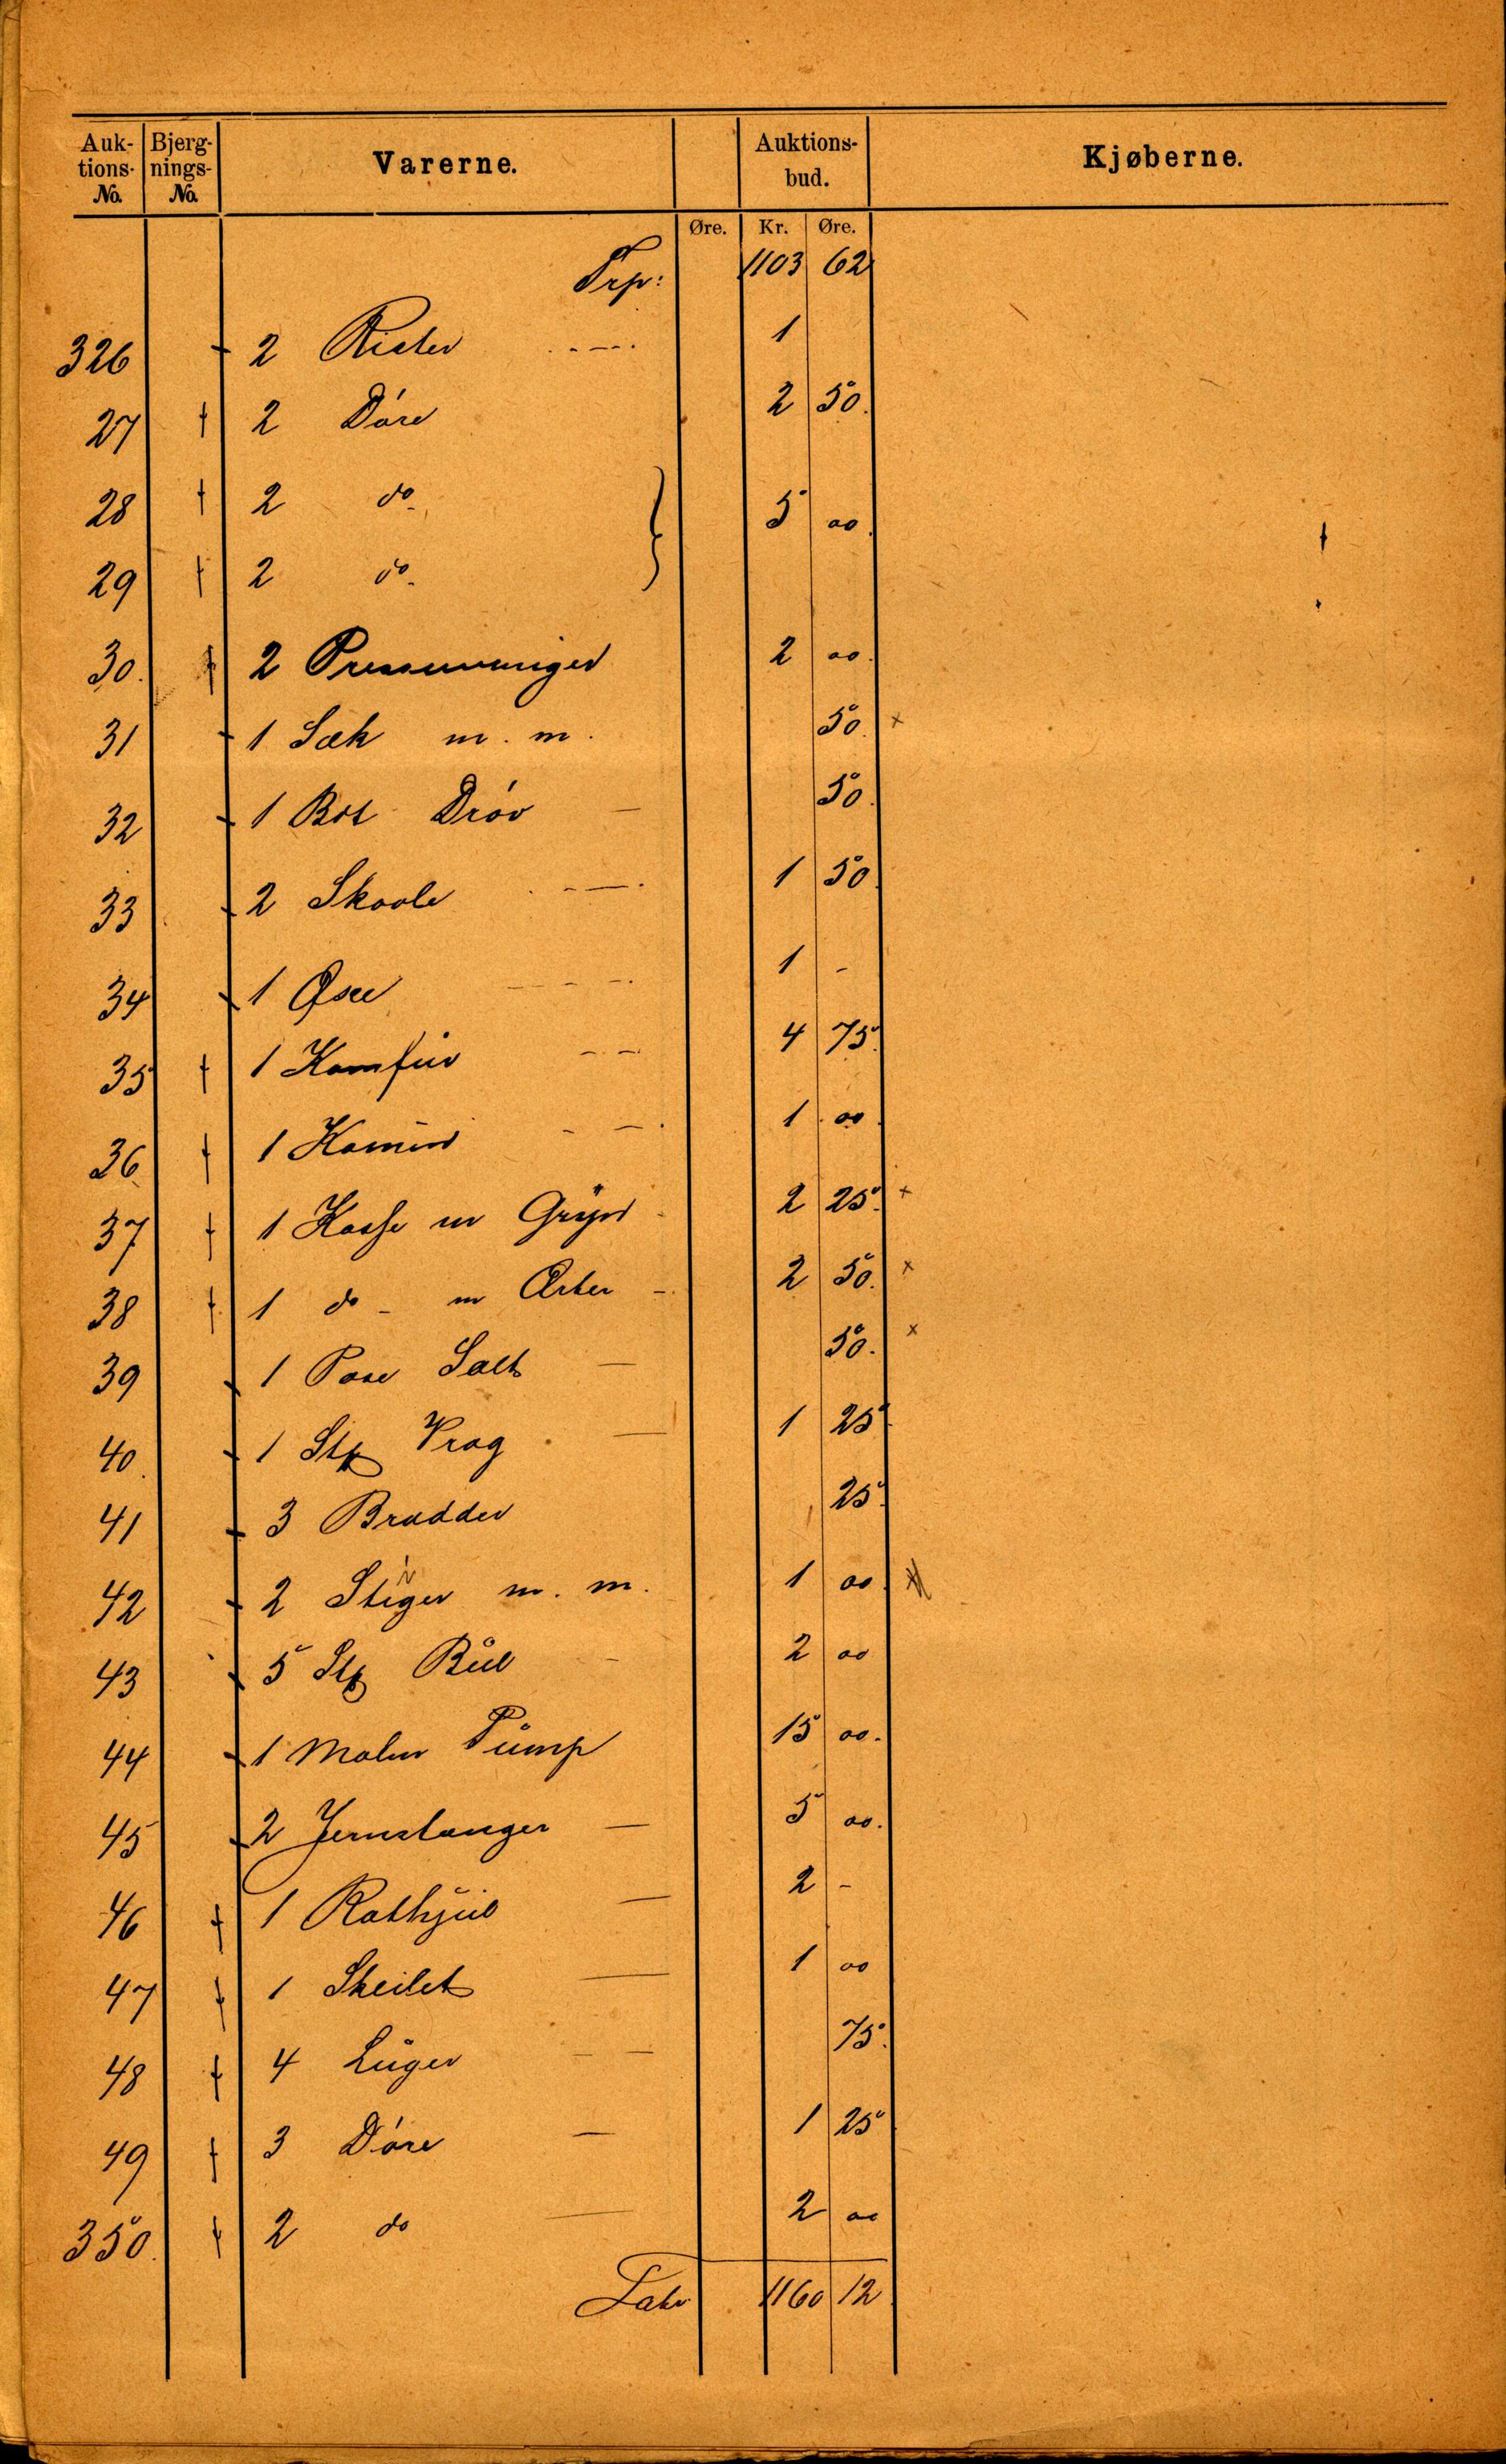 Auk- Bjerg- Varerne. Auktions- Kjøberne.
tions- nings- bud.
No. No.
Øre. Kr. Øre.
Trp: 1103 62
326 2 Rister 1
27 2 Döre 2 50.
28 2 do 5 00.
29 2 do
30. 2 Pressenninger 2 00.
31 1 Sæk m. m. 50.
32 1 Bdt Dröv 50.
33 2 Skaale 1 50.
34 1 Øse 1 -
35 1 Komfur 4 75.
36 1 Kamin 1 00.
37 1 Kasse m Gryn 2 25.
38 1 do - m Ærter 2 50.
39 1 Pose Salt 50.
40. 1 Stk Vrag 1 25
41 3 Brædder 25.
42 2 Stiger m. m. 1 00.
43 5 Stk 2 00
44 1 Malm Pump 15 00.
45 2 Jernstanger 5 00.
46 1 Rathjul 2 -
47 1 Skeilet 1 00
48 4 Luger 75.
49 3 Döre 1 25
350. 2 do 2 00
Latr 1160 12